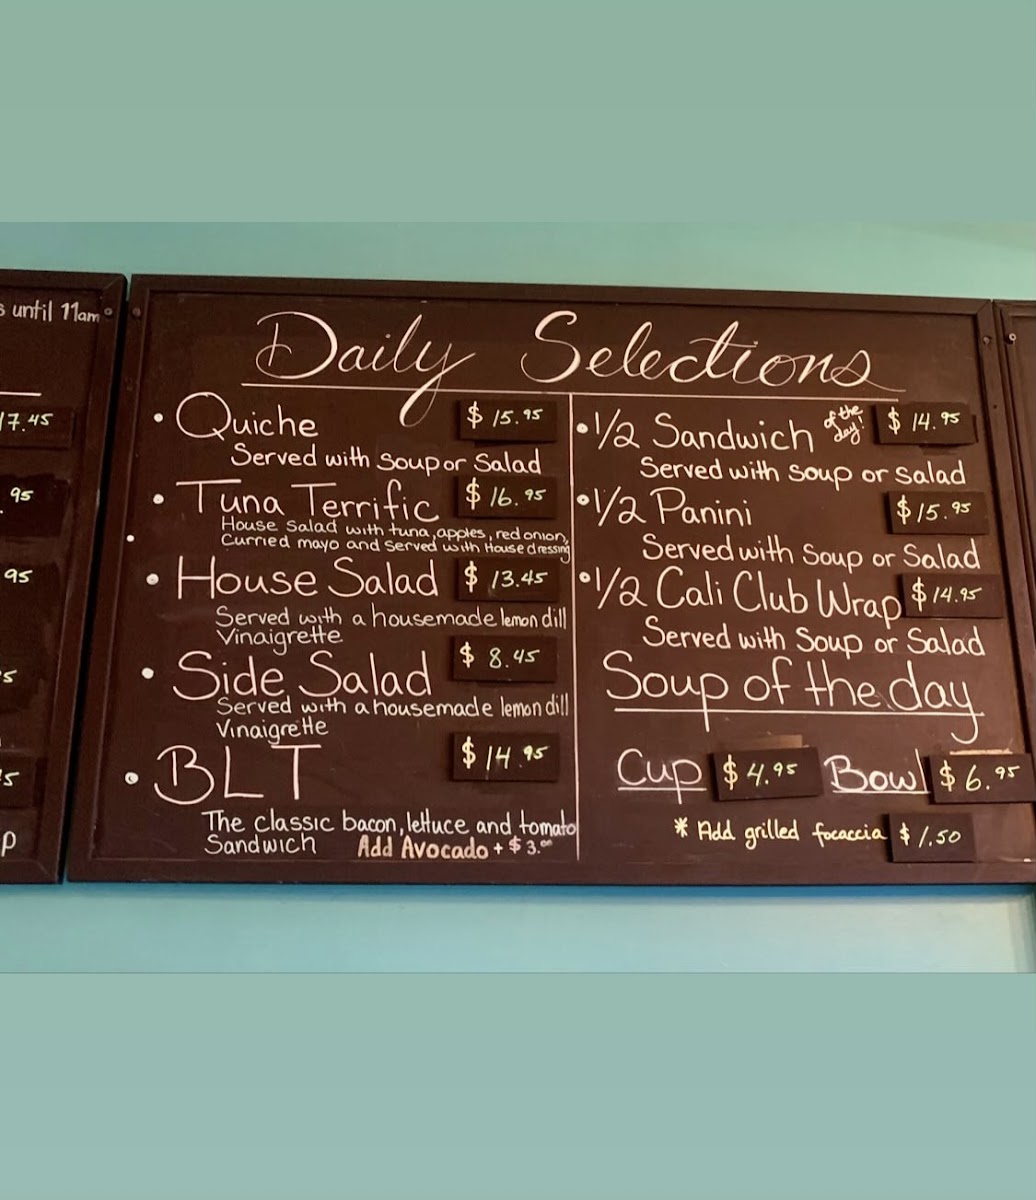 s until 11am
17.45
95
95
5
5
p
Daily Selections
• Quiche $15.95
Served with Soup or Salad
• Tuna Terrific $16.95
House Salad with tuna, apples, red onion,
Curried mayo and served with House dressing
• House Salad $13.45
Served with a housemade lemon dill
Vinaigrette
• Side Salad $8.45
Served with a housemade lemon dill
Vinaigrette
• BLT $14.95
The classic bacon, lettuce and tomato
Sandwich Add Avocado + $3.00
• 1/2 Sandwich of the day! $14.95
Served with soup or salad
• 1/2 Panini $15.95
Served with Soup or Salad
• 1/2 Cali Club Wrap $14.95
Served with Soup or Salad
Soup of the day
Cup $4.95 Bowl $6.95
* Add grilled focaccia $1.50